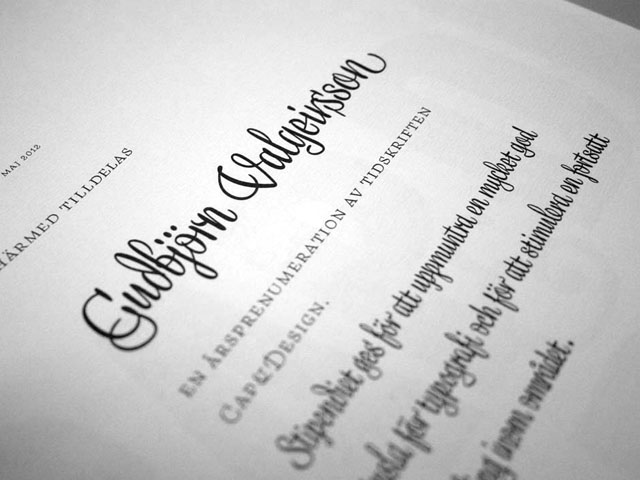 MAJ 2012
HÄRMED TILLDELAS
Gudbjörn Valgeirsson
EN ÅRSPRENUMERATION AV TIDSKRIFTEN
CAP&DESIGN.
Stipendiet ges för att uppmuntra en mycket god
för typografi och för att stimulera en fortsatt
inom området.